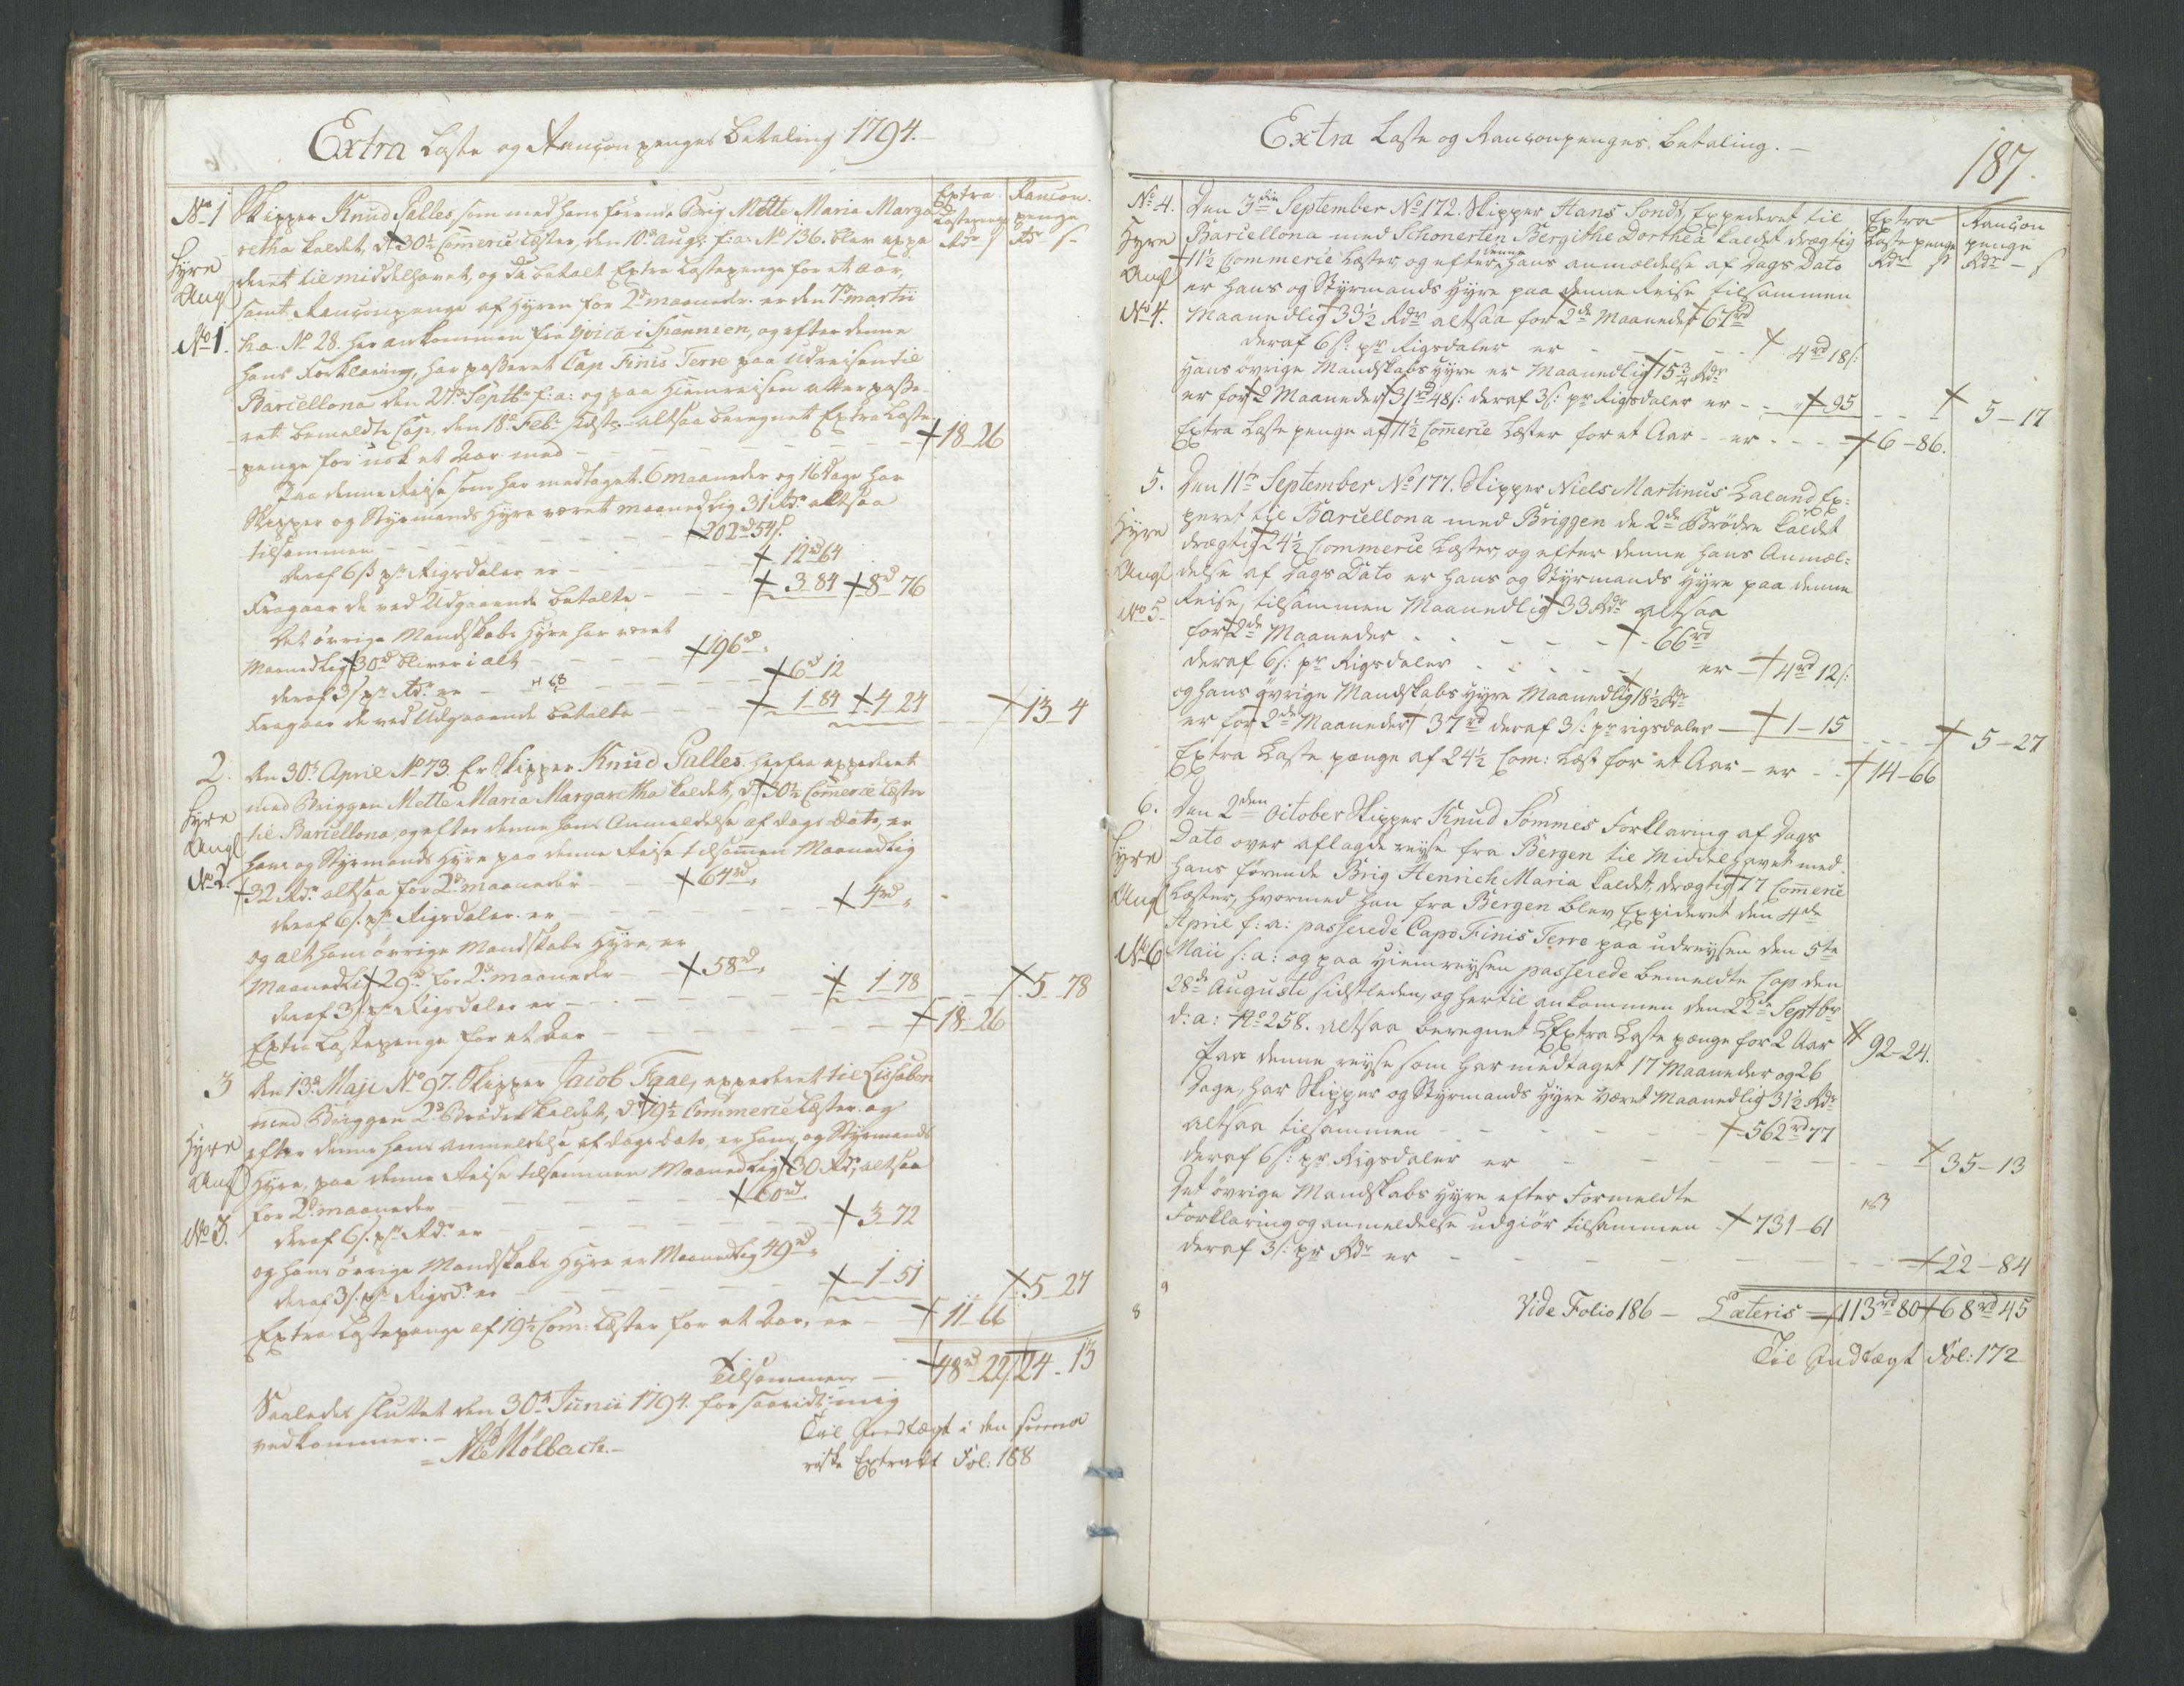 Extra Læste og Rançonpenges betaling 1794.
No 1 Skipper Knud Palles, som med hans förende Brig Mette Maria Marga Extra Rancon-
retha kaldet, d. 30½ Comerce Læster, den 10de Augs: f: a: No 136. blev expe Lastepenge penge
Hyre deret til middelhavet, og da betalt Extra Lastepenge for et aar, Rdr s Rdr s
Angl samt Rançonpenge af Hyren for 2de maaneder. er den 7de martii
No 1. h: a: No 28. her ankommen fra Yvica i Spannien, og efter denne
hans Forklaring, har passeret Cap Finis Terre paa udreisen til
Barcellona den 27de Septbr f: a: og paa Hiemreisen atter passe-
ret bemeldte Cap, den 18de Febr: sidstl: altsaa beregnet Extra Læste-
penge for nok et Aar med 18 26
Paa denne Reise som har medtaget 6 maaneder og 16 dage har
Skipper og Styrmands Hyre været maanedlig 31 Rdr altsaa
tilsammen 202rd 54s.
deraf 6s pr Rigsdaler er 12rd 64
Fragaar de ved Udgaaende betalte 3 84 8rd 76
Det övrige Mandskabs Hyre har været
Maanedlig 30rd bliver i alt 196rd
deraf 3s pr Rdr er 6rd 12
Fragaar de ved Udgaaende betalte 1 84 4 24 13 4
2. den 30te April No 73. Er Skipper Knud Palles herfra expederet
med Briggen Mette Maria Margaretha kaldet, d. 30½ Comerce Læster
Hyre til Barcellona, og efter denne hans Anmeldelse af dags dato, er
Angl hans og Styrmands Hyre paa denne Reise tilsamen Maanedlig
No 2. 32 Rdr altsaa for 2de maaneder 64rd
deraf 6s. pr Rigsdaler er 4rd
og alt hans övrige Mandskabs Hyre, er
Maanedlig 29rd for 2de maaneder 58rd
deraf 3s. pr Rigsdaler er 1 78 5 78
Extra Lastepenge for et Aar 18 26
3 den 13de Maji No 97. Skipper Jacob Faae, expederet til Lissabon
med Briggen 2de Brödre kaldet, dr. 19½ Commerce Læster og
Hyre efter denne hans anmeldelse af dags dato, er hans og Styrmands
Angl Hyre, paa denne Reise tilsammen Maanedlig 30 Rdr, altsaa
for 2de maaneder 60rd
No 3. deraf 6s. pr Rdr er 3 72
og hans övrige Mandskabs Hyre er Maanedlig 49rd
deraf 3s. pr Rigsd. er 1 51 5 27
Extra Lastepenge af 19½ Com: Læster for et Aar, er 11 66
Tilsammen 48rd 22s 24 13
Saaledes sluttet den 30te Junii 1794. for saavidt mig
vedkommer.
Mölbach. Til Indtægt i den suma
riske Extract Fol: 188
Extra Laste og Rançonpenges betaling.
187.
No 4. Den 3die September No 172. Skipper Hans Sondt, Expederet til Extra Rançon
Hyre Barcellona med Schonerten Bergithe Dorthea kaldet drægtig Laste penge penge
Angl 11½ Commerce Læster, og efter denne hans anmældelse af Dags Dato Rdr s Rdr s
er hans og Styrmands Hyre paa denne Reise tilsammen
No 4. Maanedlig 33½ Rdr altsaa for 2de Maaneder 67rd
deraf 6s: pr Rigsdaler er 4rd 18s:
Hans övrige Mandskabs Hyre er Maanedlig 15¾ Rdr
er for 2 Maaneder 31rd 48s: deraf 3s: pr Rigsdaler er 95 5-17
Extra Laste penge af 11½ Comerce Læster for et Aar er 6-86.
5. Den 11te September No 177. Skipper Niels Martinus Laland Ex-
Hyre peret til Barcellona med Briggen de 2de Brödre kaldet
drægtig 24½ Commerce Læster, og efter denne hans Anmæl-
Angl delse af Dags Dato er hans og Styrmands Hyre paa denne
No 5. Reise, tilsammen Maanedlig 33 Rdr altsaa
for 2de Maaneder 66rd
deraf 6s: pr Rigsdaler er 4rd 12s:
og hans övrige Mandskabs Hyre Maanedlig 18½ Rdr
er for 2de Maaneder 37rd deraf 3s: pr rigsdaler 1-15 5-27
Extra Laste penge af 24½ Com: Læst for et Aar er 14-66
6. Den 2den October Skipper Knud Sömmes Forklaring af Dags
Hyre Dato over aflagde reyse fra Bergen til Middel havet med
hans förende Brig Henrich Maria kaldet, drægtig 77 Comerce
Angl Læster, hvormed han fra Bergen blev Expideret den 4de
April f: a: passerede Capo Finis Terre paa udreysen den 5te
No 6 Maii f: a: og paa Hiemreysen passerede bemeldte Cap den
28de Augusti sidstleden, og hertil ankommen den 22de Septbr
d: a: No 258. altsaa beregnet Extra Laste penge for 2 Aar 92-24.
Paa denne reyse som har medtaget 17 Maaneder og 26
Dage, har Skipper og Styrmands Hyre været Maanedlig 31½ Rdr
altsaa tilsammen 562rd 77
deraf 6s: pr Rigsdaler er 35-13
Det övrige Mandskabs Hyre efter Formeldte
Forklaring og anmeldelse udgiör tilsammen 731-61
deraf 3s: pr Rdr er 22-84
Vide Folio 186 Lateris 113rd 80 68rd 45
Til Indtægt Fol: 172